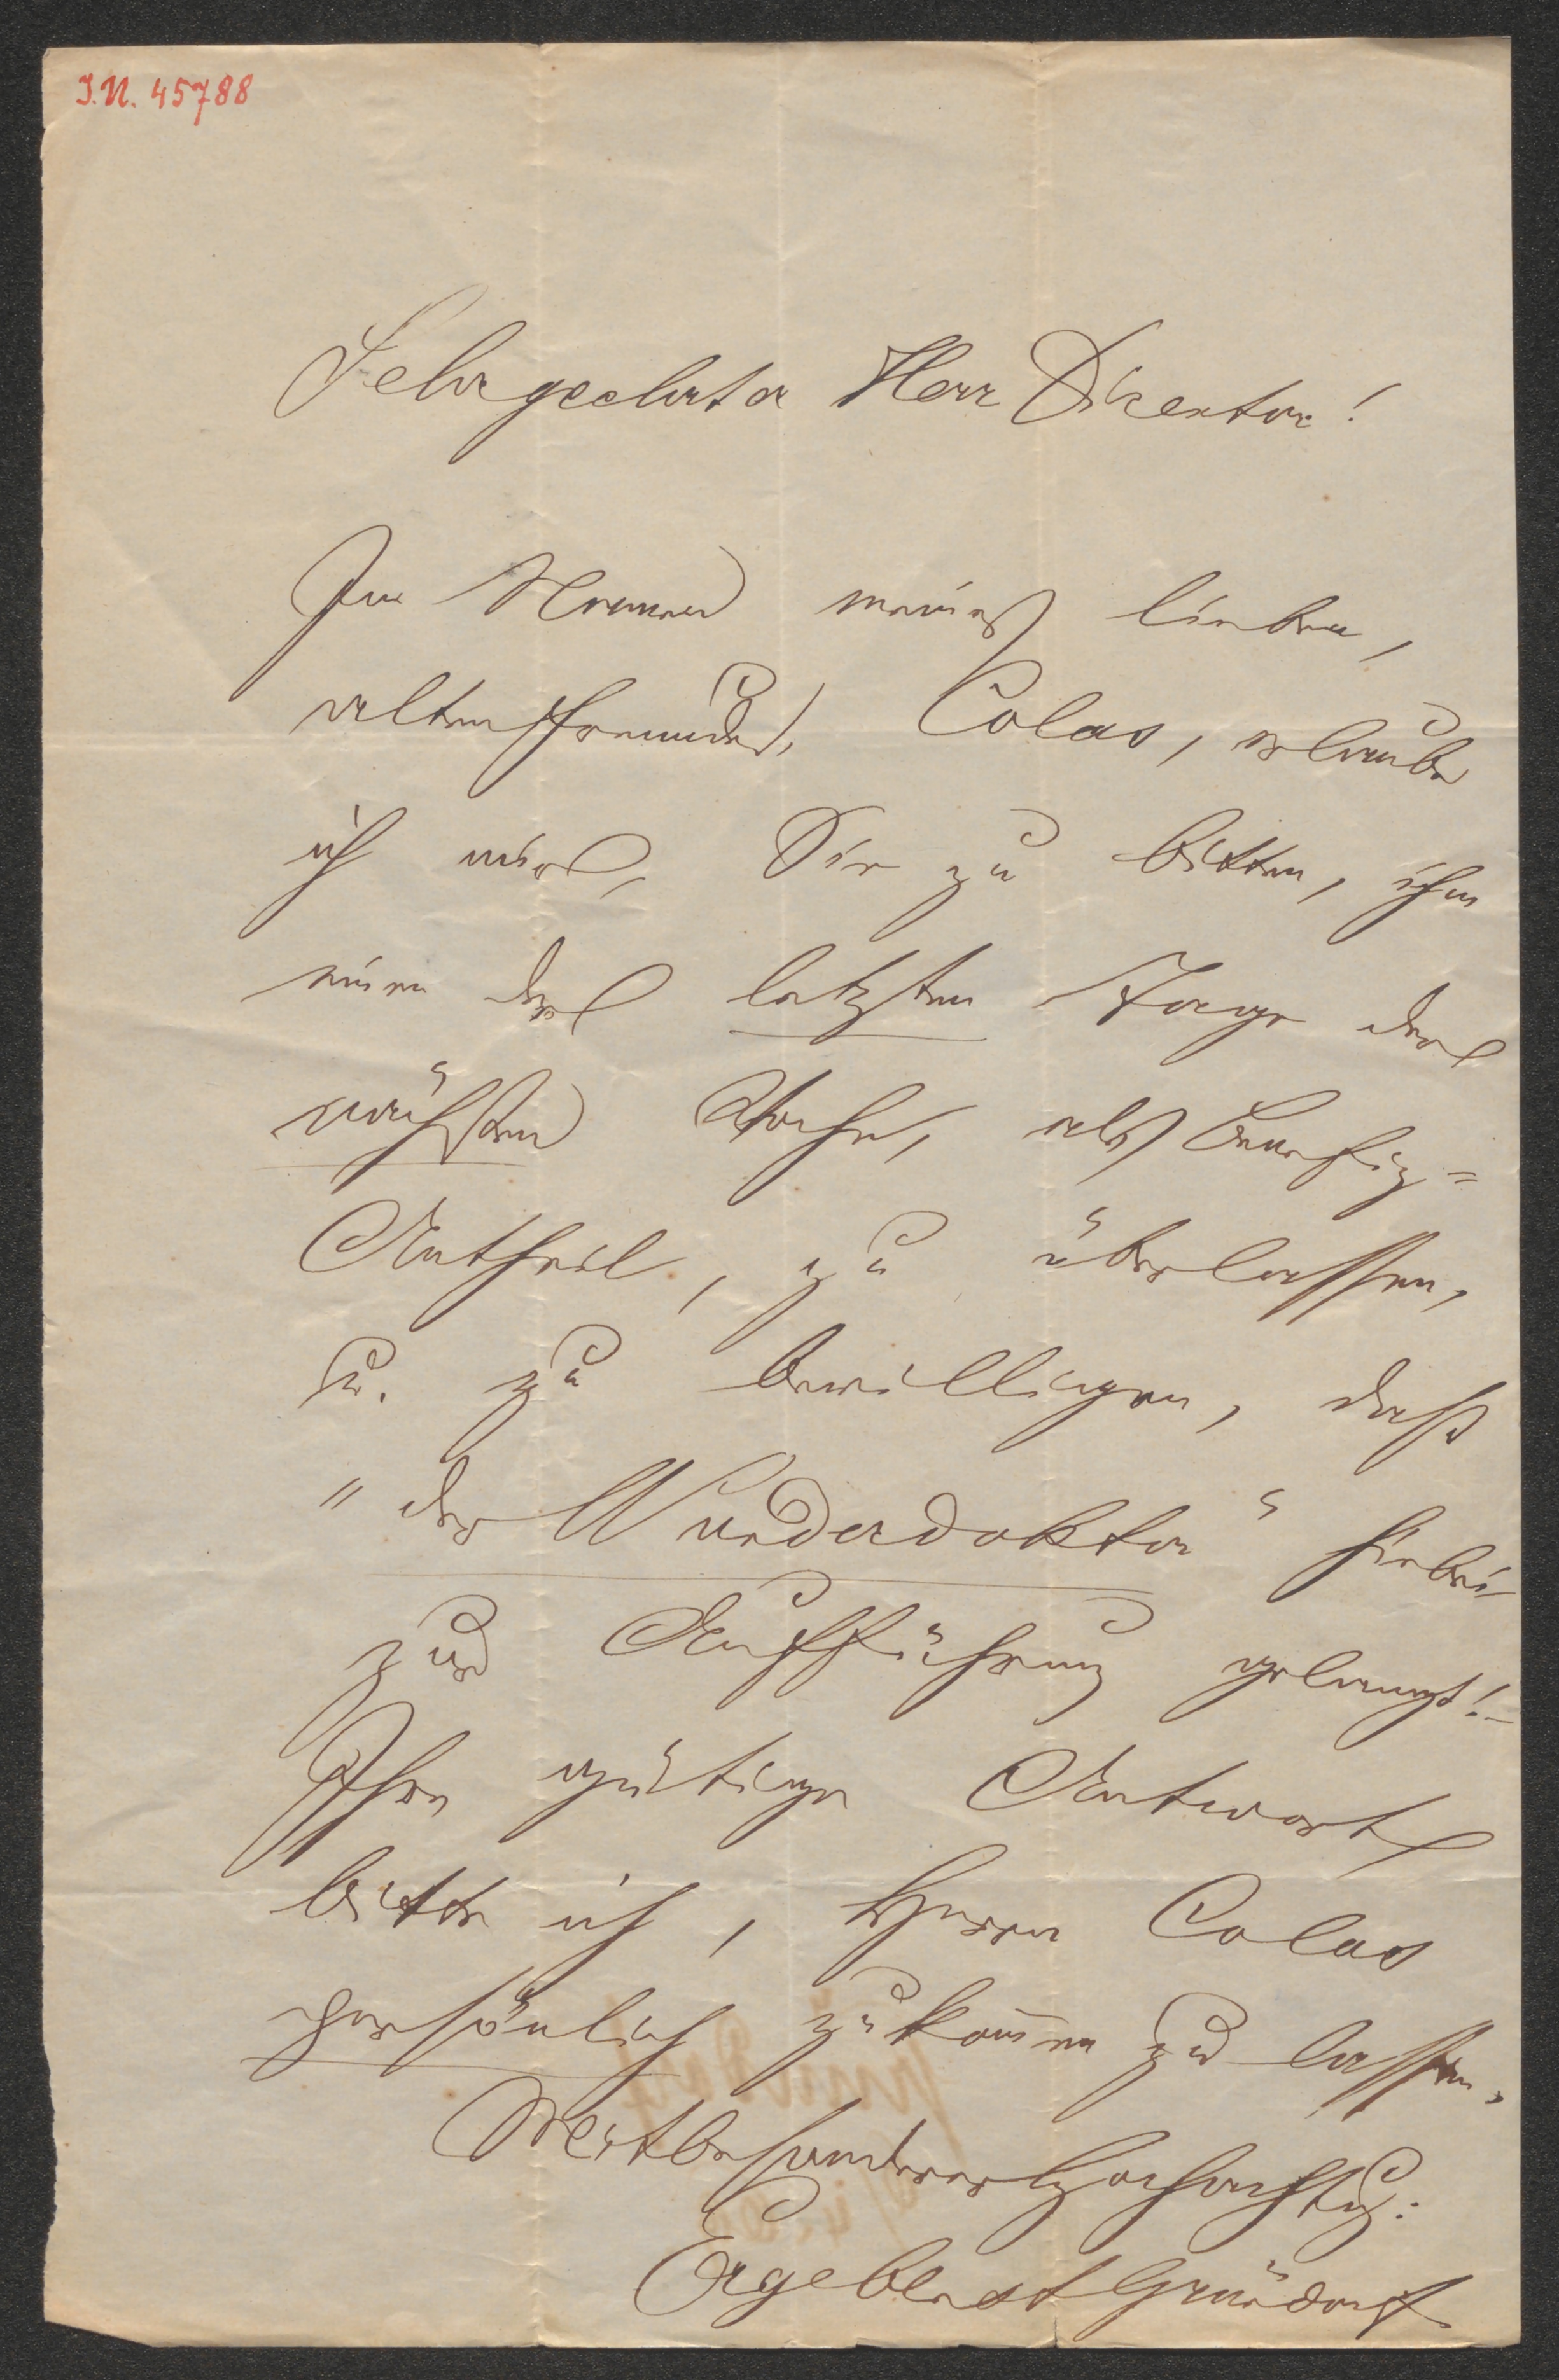 I.N. 45788
Sehrgeehrter Herr Direktor!
Im Namen meines lieben,
alten Freundes, Colas, erlaube
ich mir, Sie zu bitten, ihm
einen der letzten Tage der
nächsten Woche, als Benefiz=
Antheil, zu überlassen,
u. zu bewilligen, daß
"der Wunderdoktor" hiebei
zur Aufführung gelangt!-
Ihre gütige Antwort
bitte ich, Herrn Colas
persönlich zukom̄en zu lassen.
Mit besonderer Hochachtg:
Ergebenst Gründorf